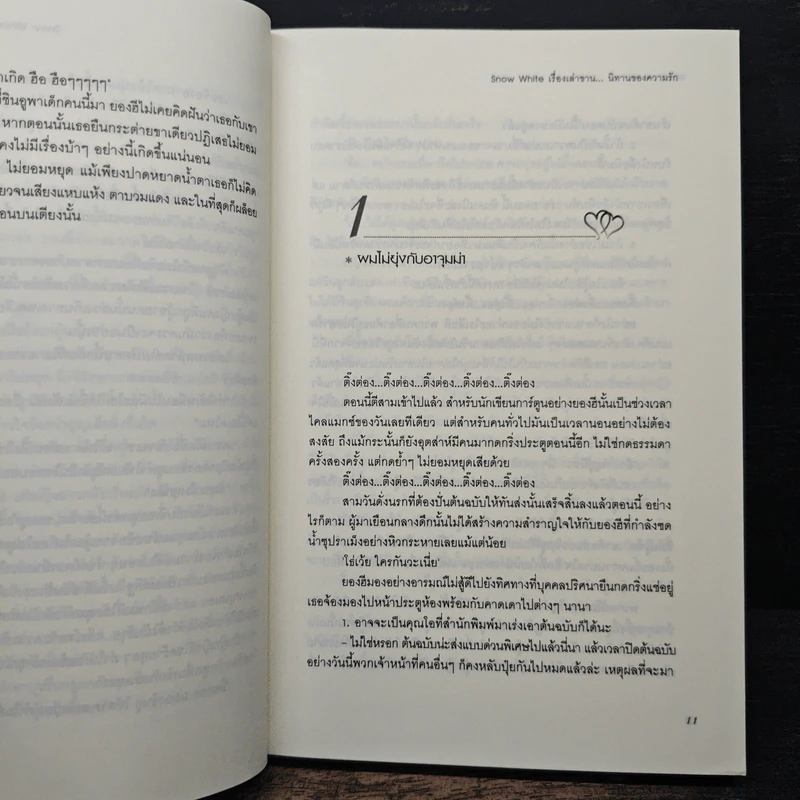 าเกิด ฮือ ฮือๆๆๆๆๆ"
ี่ชินอูพาเด็กคนนี้มา ยองฮีไม่เคยคิดฝันว่าเธอกับเขา
หากตอนนั้นเธอยืนกระต่ายขาเดียวปฏิเสธไม่ยอม
คงไม่มีเรื่องบ้าๆ อย่างนี้เกิดขึ้นแน่นอน
ไม่ยอมหยุด แม้เพียงปาดหยาดน้ำตาเธอก็ไม่คิด
ยวจนเสียงแหบแห้ง ตาบวมแดง และในที่สุดก็ผล็อย
อนบนเตียงนั้น
Snow White เรื่องเล่าขาน... นิทานของความรัก
1
* ผมไม่ยุ่งกับอาจุมม่า
ติ๊งต่อง...ติ๊งต่อง...ติ๊งต่อง...ติ๊งต่อง...ติ๊งต่อง
ตอนนี้ตีสามเข้าไปแล้ว สำหรับนักเขียนการ์ตูนอย่างยองฮีนั้นเป็นช่วงเวลา
ไคลแมกซ์ของวันเลยทีเดียว แต่สำหรับคนทั่วไปมันเป็นเวลานอนอย่างไม่ต้อง
สงสัย ถึงแม้กระนั้นก็ยังอุตส่าห์มีคนมากดกริ่งประตูตอนนี้อีก ไม่ใช่กดธรรมดา
ครั้งสองครั้ง แต่กดย้ำๆ ไม่ยอมหยุดเสียด้วย
ติ๊งต่อง...ติ๊งต่อง...ติ๊งต่อง...ติ๊งต่อง...ติ๊งต่อง
สามวันดั่งนรกที่ต้องปั่นต้นฉบับให้ทันส่งนั้นเสร็จสิ้นลงแล้วตอนนี้ อย่าง
ไรก็ตาม ผู้มาเยือนกลางดึกนั้นไม่ได้สร้างความสำราญใจให้กับยองฮีที่กำลังซด
น้ำซุปราเม็งอย่างหิวกระหายเลยแม้แต่น้อย
'โธ่เว้ย ใครกันวะเนี่ย'
ยองฮีมองอย่างอารมณ์ไม่สู้ดีไปยังทิศทางที่บุคคลปริศนายืนกดกริ่งแช่อยู่
เธอจ้องมองไปหน้าประตูห้องพร้อมกับคาดเดาไปต่างๆ นานา
1. อาจจะเป็นคุณโอที่สำนักพิมพ์มาเร่งเอาต้นฉบับก็ได้นะ
– ไม่ใช่หรอก ต้นฉบับน่ะส่งแบบด่วนพิเศษไปแล้วนี่นา แล้วเวลาปิดต้นฉบับ
อย่างวันนี้พวกเจ้าหน้าที่คนอื่นๆ ก็คงหลับปุ๋ยกันไปหมดแล้วล่ะ เหตุผลที่จะมา
11